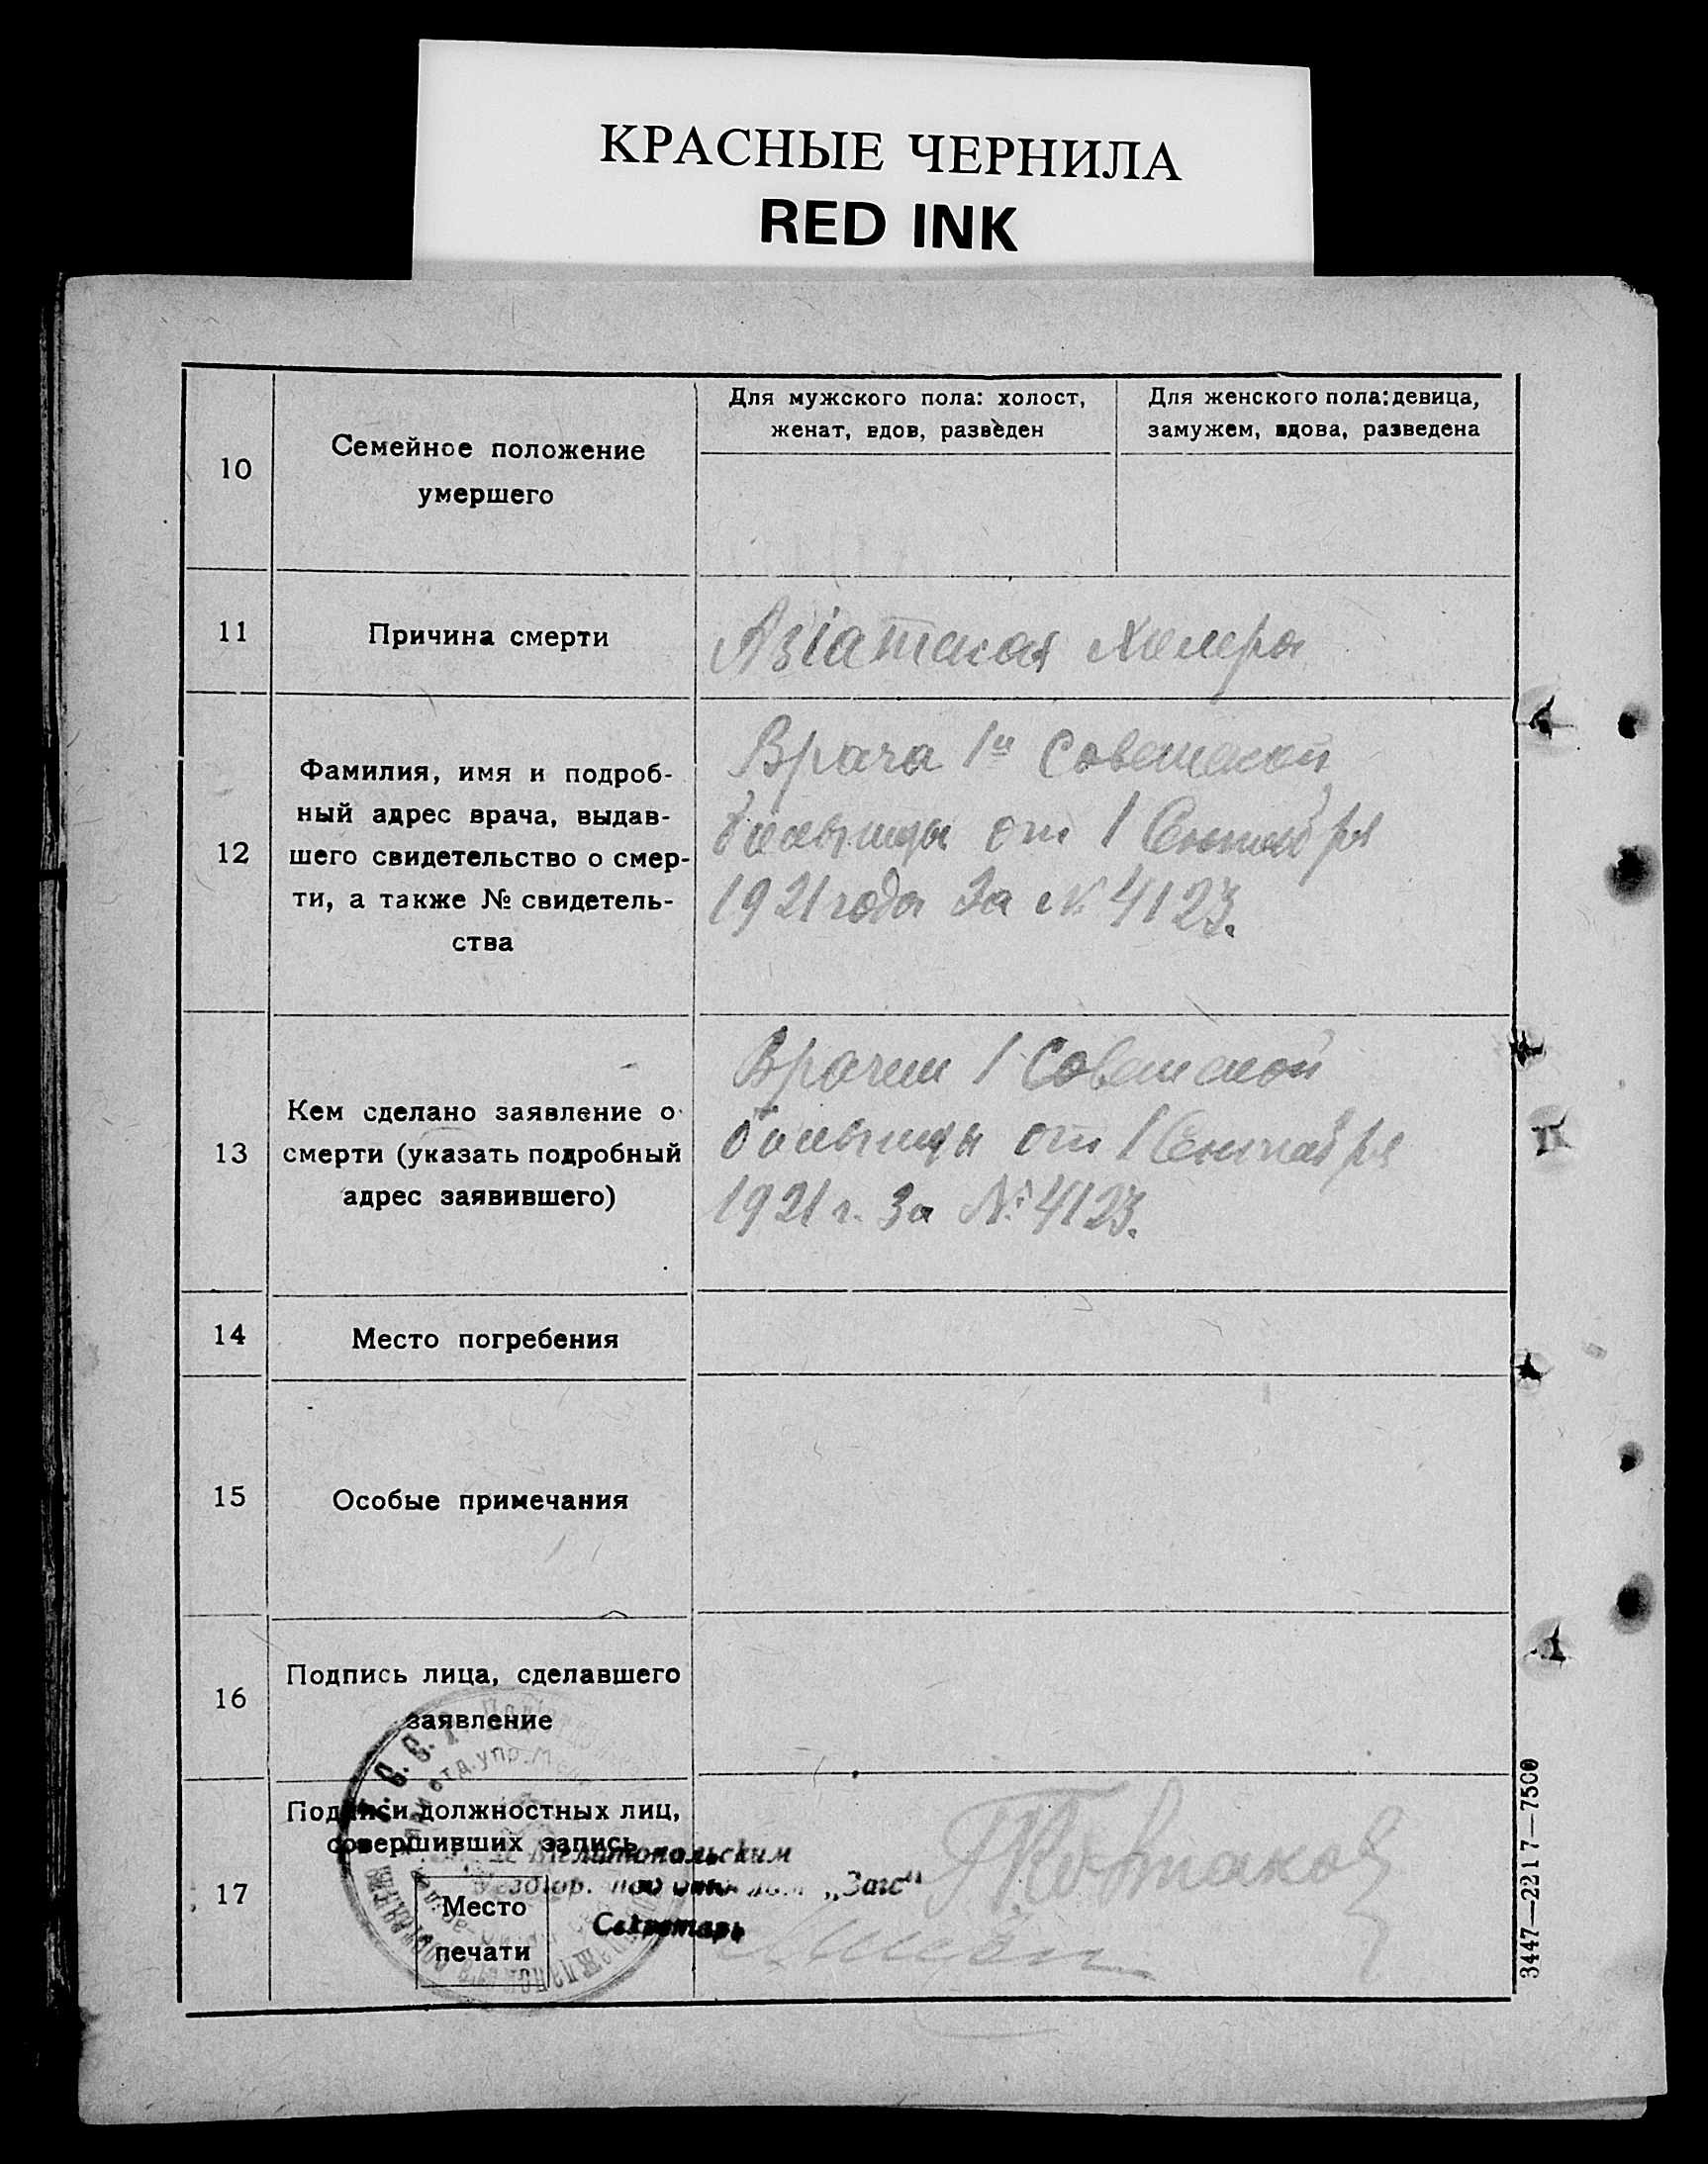 КРАСНЫЕ ЧЕРНИЛА
RED INK
10
Семейное положение
умершего
Для мужского пола: холост,
женат, вдов, разведен
Для женского пола: девица,
замужем, вдова, разведена
11
Причина смерти
Азіатская Холера
12
Фамилия, имя и подроб-
ный адрес врача, выдав-
шего свидетельство о смер-
ти, а также № свидетель-
ства
Врача 1й Советской
больницы от 1 Сентября
1921 года За № 4123.
13
Кем сделано заявление о
смерти (указать подробный
адрес заявившего)
Врачем 1 Советской
больницы от 1 Сентября
1921 г. За № 4123.
14
Место погребения
15
Особые примечания
16
Подпись лица, сделавшего
заявление
17
Подписи должностных лиц,
совершивших запись
Место
печати
Мелитопольским
„Загс"
Секретарь
3447—2217—7500